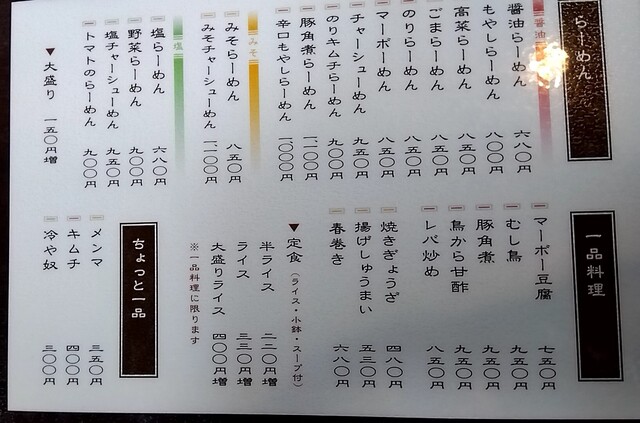 らーめん
醤油
醤油らーめん 六八〇円
もやしらーめん 八〇〇円
高菜らーめん 八五〇円
ごまらーめん 八五〇円
のりらーめん 八五〇円
マーボーめん 八五〇円
チャーシューめん 九五〇円
のりキムチらーめん 九〇〇円
豚角煮らーめん 一一〇〇円
辛口もやしらーめん 一〇〇〇円
みそ
みそらーめん 八五〇円
みそチャーシューめん 一一〇〇円
塩
塩らーめん 六八〇円
野菜らーめん 九〇〇円
塩チャーシューめん 九五〇円
トマトのらーめん 九〇〇円
▼大盛り 一五〇円増
一品料理
マーボー豆腐 七五〇円
むし鳥 九五〇円
豚角煮 九五〇円
鳥から甘酢 九五〇円
レバ炒め 八五〇円
焼きぎょうざ 四八〇円
揚げしゅうまい 五三〇円
春巻き 六八〇円
▼定食(ライス・小鉢・スープ付)
半ライス 二二〇円増
ライス 三三〇円増
大盛りライス 四〇〇円増
※一品料理に限ります
ちょっと一品
メンマ 三五〇円
キムチ 四〇〇円
冷や奴 三〇〇円